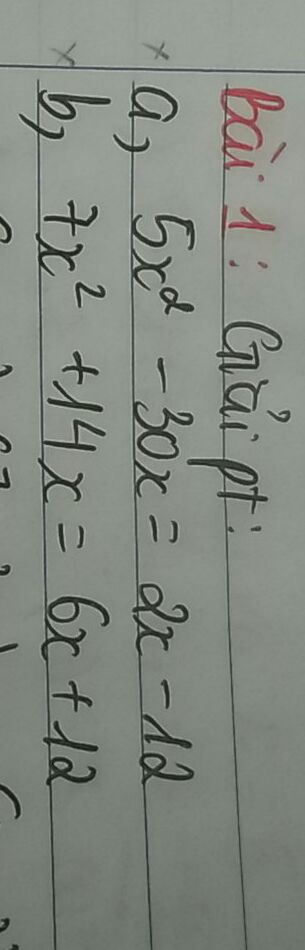 Bài 1: Giải pt:
a, 5x² - 30x = 2x - 12
b, 7x² + 14x = 6x + 12